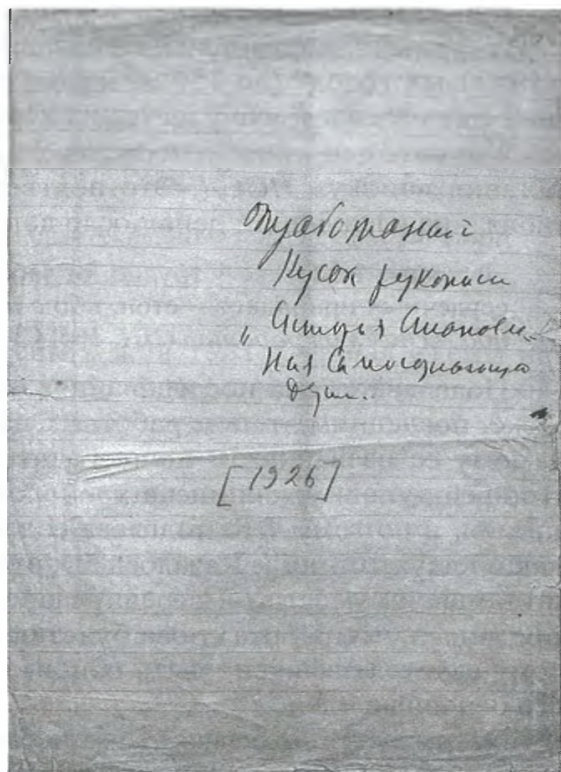 Отработаный
Кусок рукописи
„История Становле-
ния Самосознающей
души.
[1926]